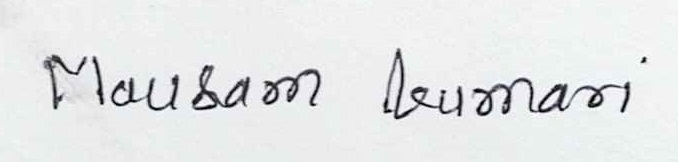 Mousam kumari